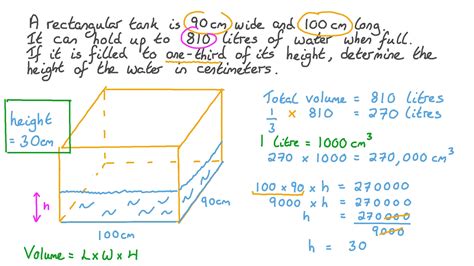 A rectangular tank is 90cm wide and 100cm long.
It can hold up to 810 litres of water when full.
If it is filled to one-third of its height, determine the
height of the water in centimeters.
height
= 30cm
h
100cm
90cm
Volume = L x W x H
Total volume = 810 litres
1/3 x 810 = 270 litres
1 litre = 1000 cm³
270 x 1000 = 270,000 cm³
100 x 90 x h = 270000
9000 x h = 270000
h = 270000/9000
h = 30